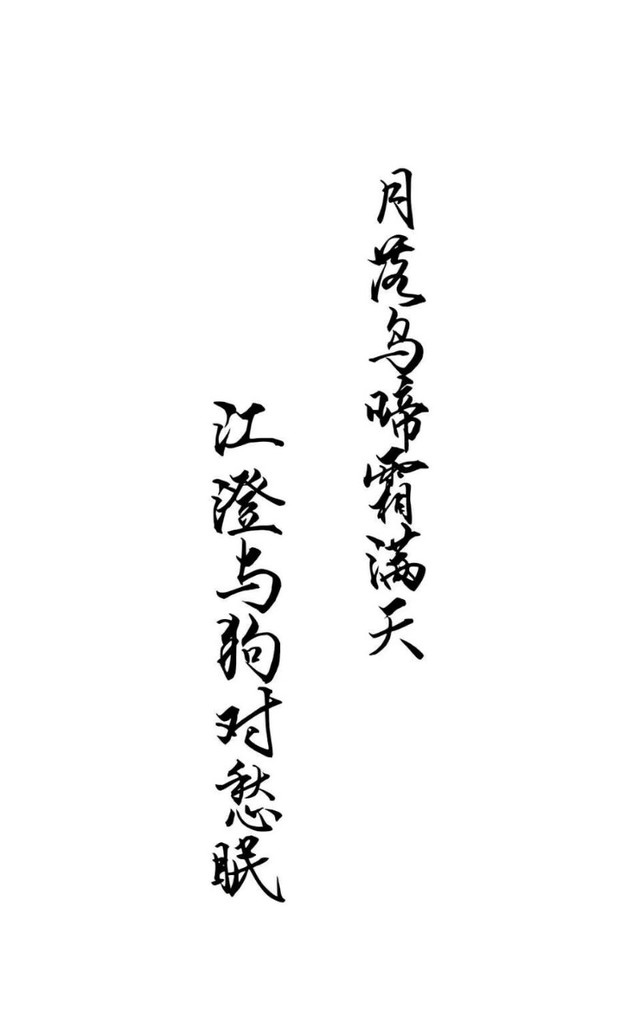 月落乌啼霜满天
江澄与狗对愁眠